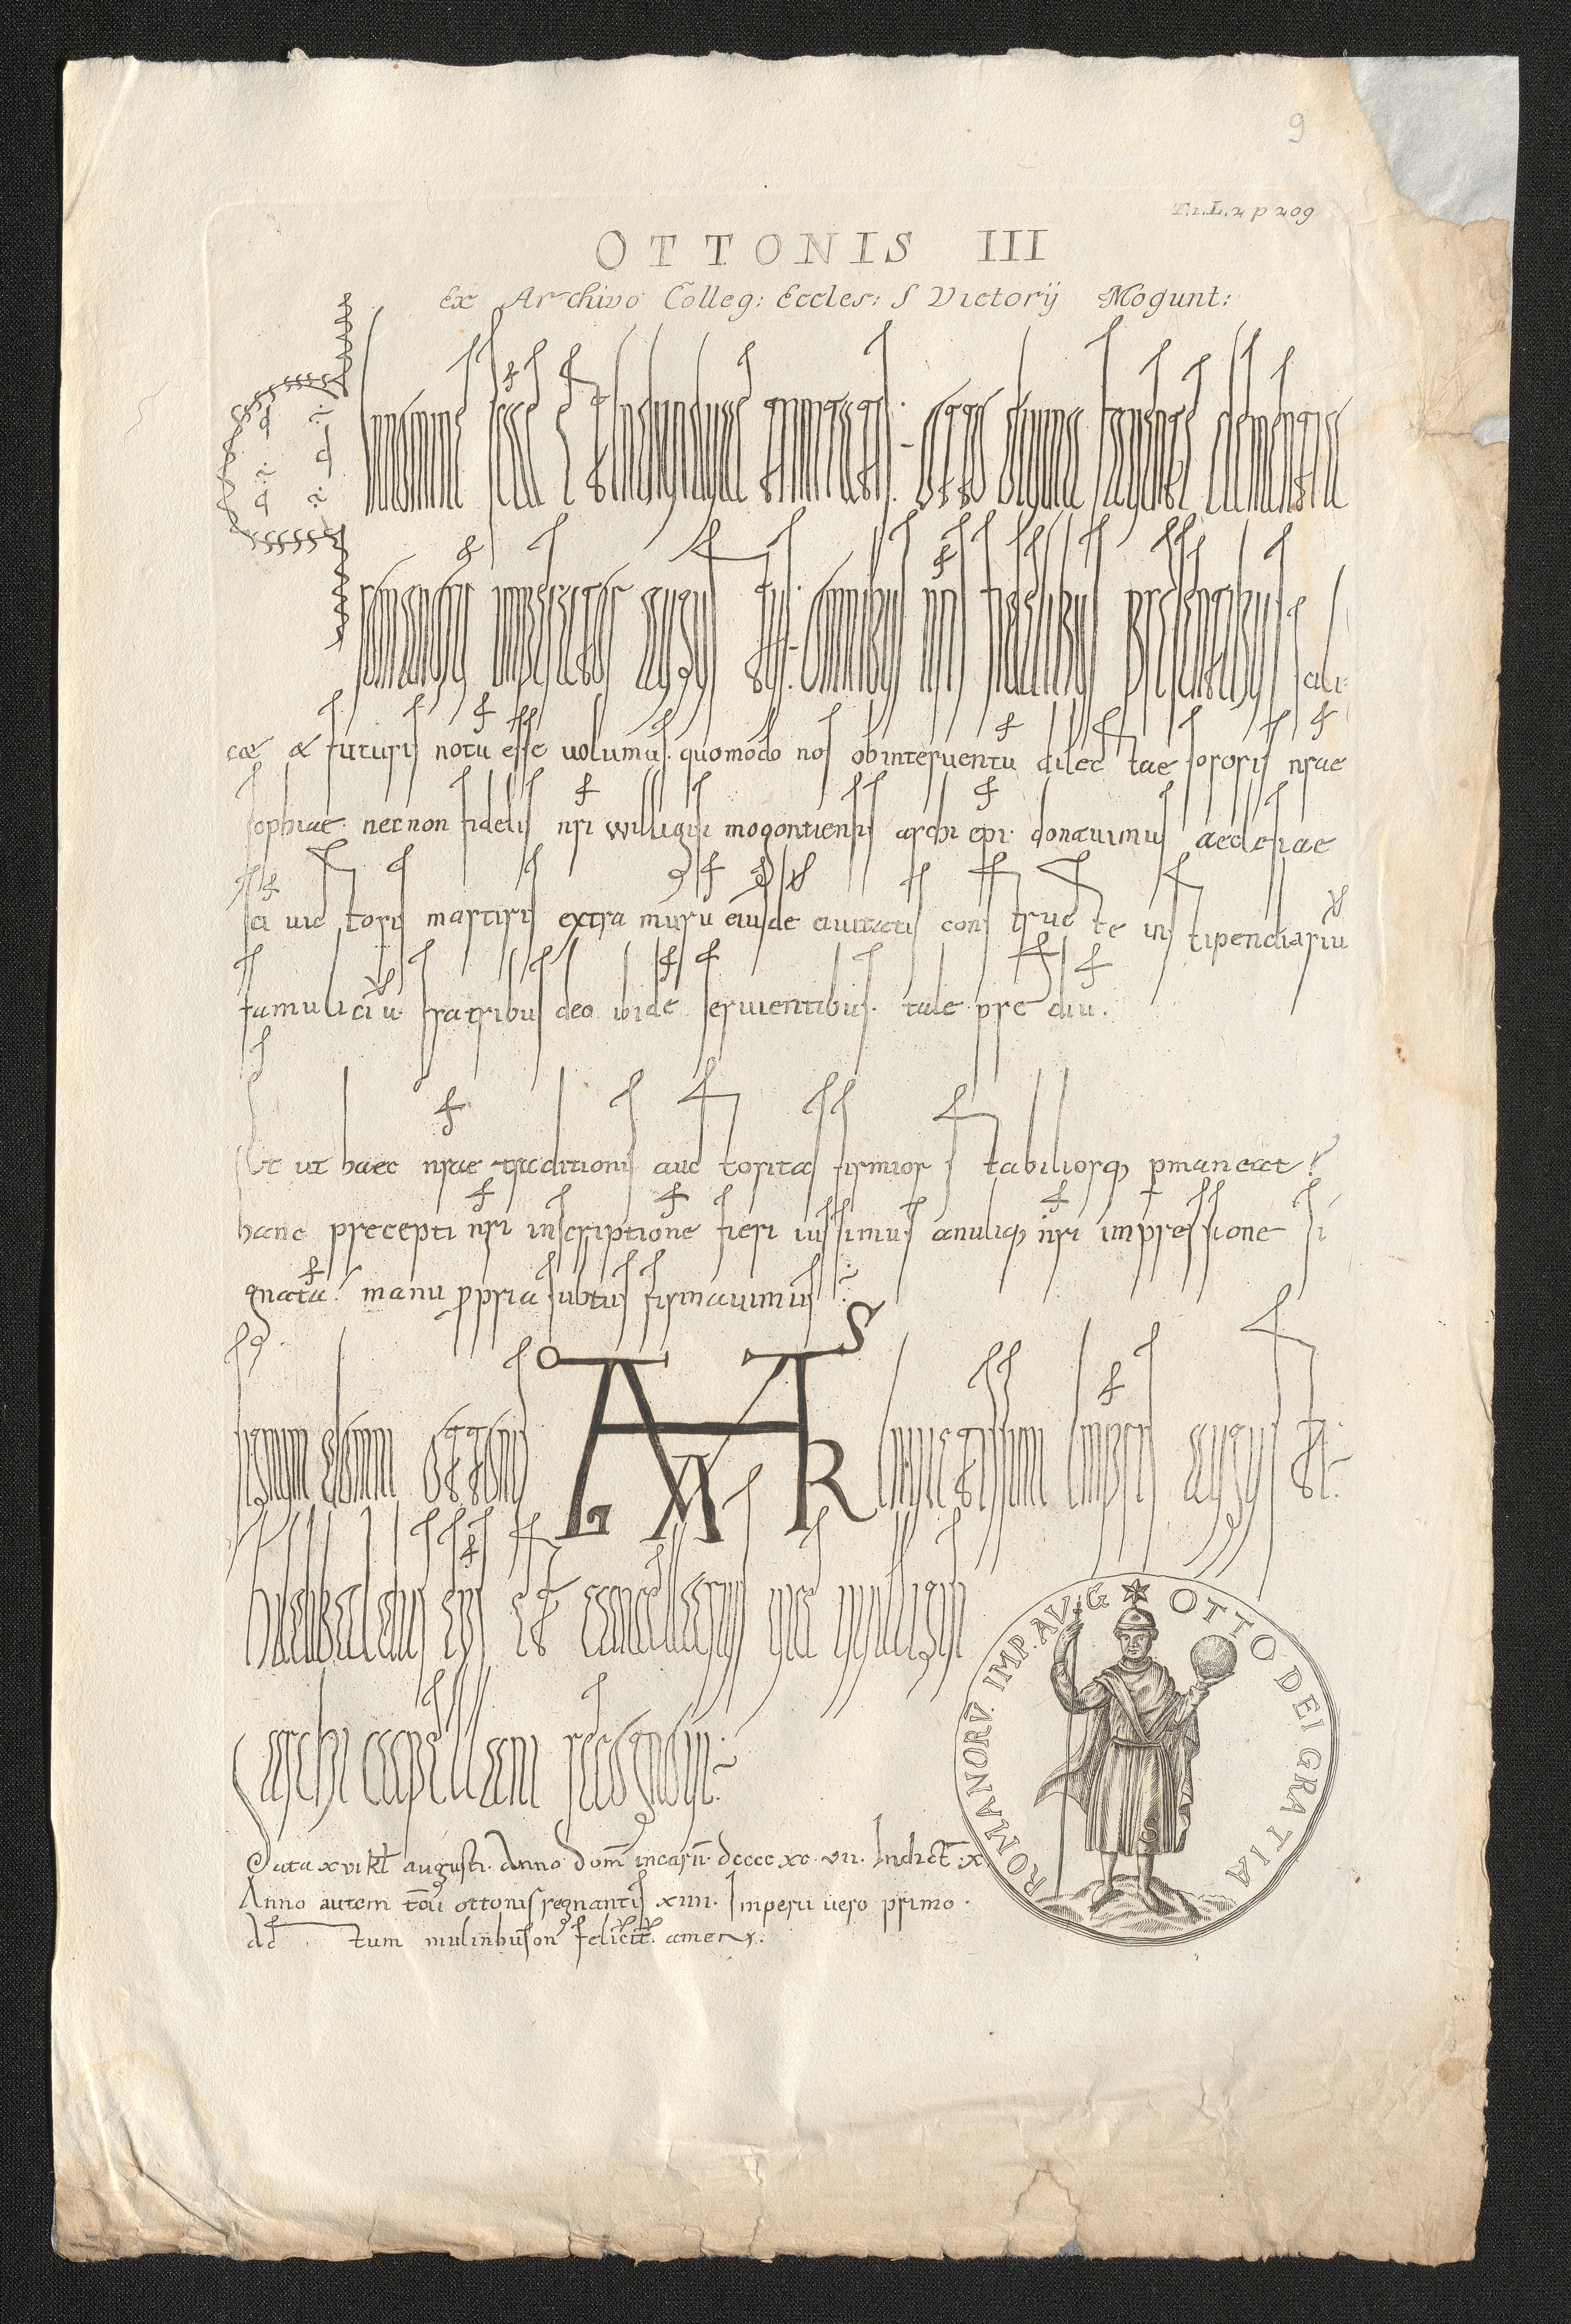 9
T. 1. L. 2 p 209
OTTONIS III
Ex Archivo Colleg: Eccles: S Victorij Mogunt:
In nomine scae & indiuiduae trinitatis. Otto diuina fauente clementia
romanorũ imperator augus tus. Omnibus nris fidelibus presentibus scili
cæ & futuris notũ esse uolumus. quomodo nos ob interuentũ dilec tae sororis nrae
sophiae. necnon fidelis nri willigisi mogontiensis archi epi. donauimus aeclesiae
sci uic toris martiris extra murũ eiusdẽ ciuitatis cons truc te in s tipendiariũ
famuliciũ. fratribus deo ibidẽ seruientibus. tale pre diũ.
Et ut haec nrae traditionis auc toritas firmior s tabiliorq; pmaneat
hanc precepti nri inscriptionẽ fieri iussimus anuliq; nri impressione si
gnatã manu ppria subtus firmauimus
signum domni ottonis
O S A T L X R
inuictissimi impris augus ti.
hildibaldus eps et cancellarius uice uuilligisi
archicapellani recognoui.
Data xvi kl augusti. Anno dom incarñ. dcccc xc. vii. Indict. x.
Anno autem tcii ottonis regnantis xiiii. Imperii uero primo.
ac tum mulinhuson felicit. amen.
OTTO DEI GRATIA ROMANORṼ. IMP. AVG